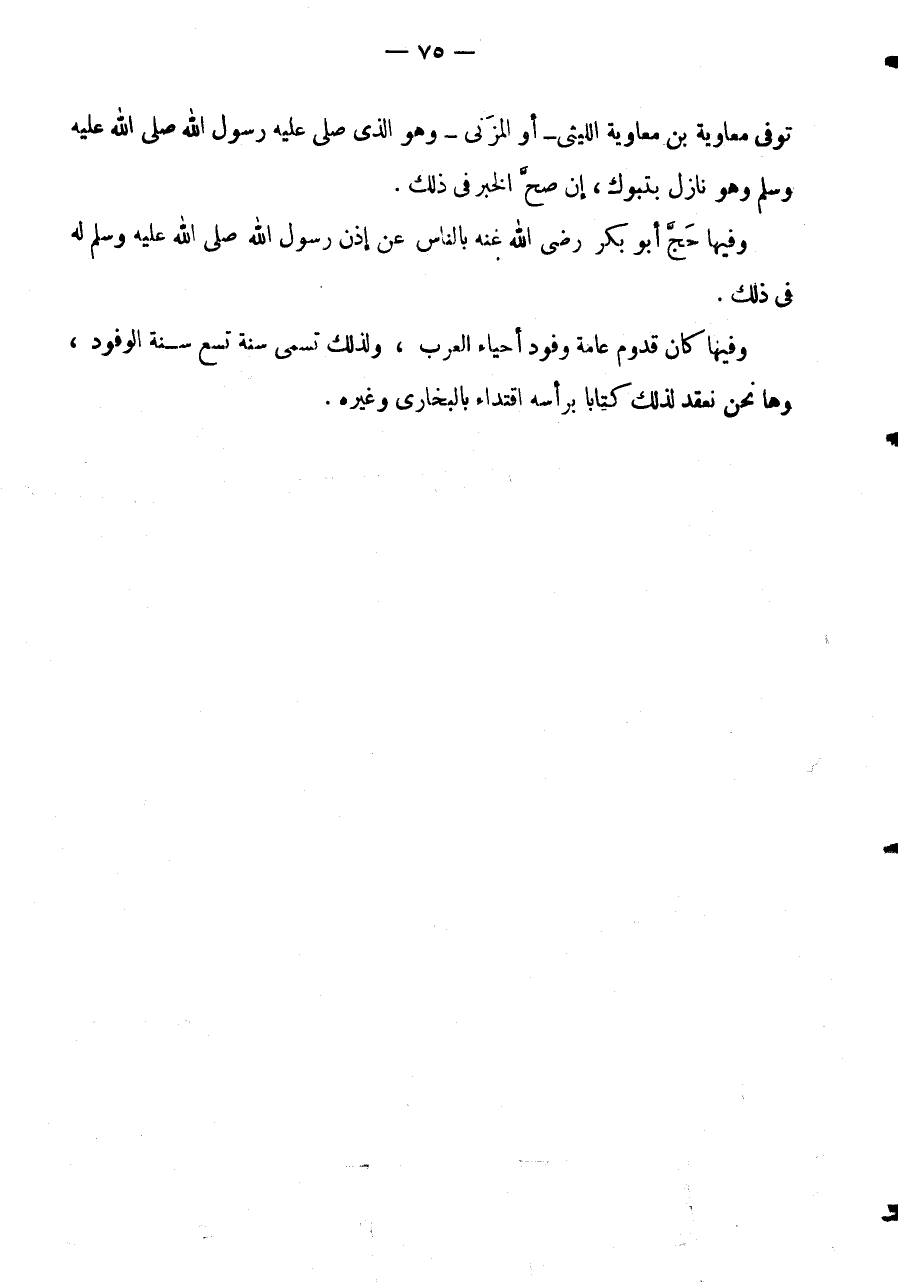 — ٧٥ —
توفى معاوية بن معاوية الليثى ـ أو المزَنى ـ وهو الذى صلى عليه رسول الله صلى الله عليه
وسلم وهو نازل بتبوك ، إن صحَّ الخبر فى ذلك .
وفيها حَجَّ أبو بكر رضى الله عنه بالناس عن إذن رسول الله صلى الله عليه وسلم له
فى ذلك .
وفيها كان قدوم عامة وفود أحياء العرب ، ولذلك تسمى سنة تسع سـنة الوفود ،
وها نحن نعقد لذلك كتابا برأسه اقتداء بالبخارى وغيره .